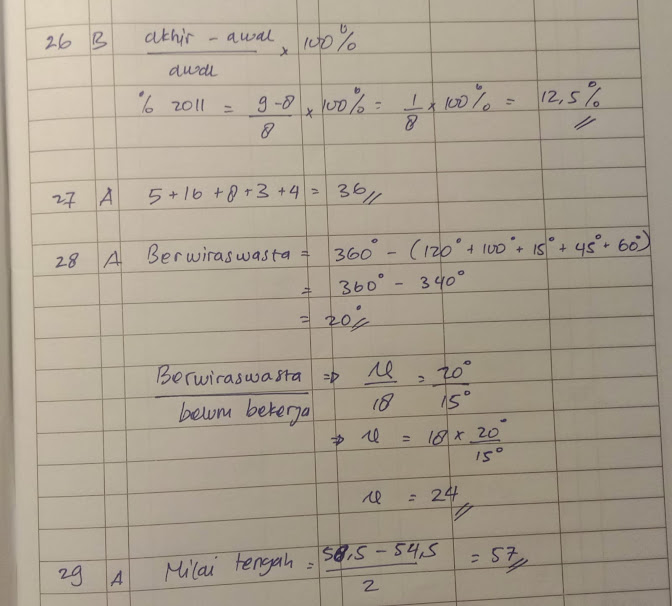 26 B akhir - awal × 100%
awal
% 2011 = 9-8 × 100% = 1 × 100% = 12,5%
8 8
27 A 5+16+8+3+4 = 36
28 A Berwiraswasta = 360° - (120° + 100° + 15° + 45° + 60°)
= 360° - 340°
= 20°
Berwiraswasta ⇒ x = 20°
belum bekerja 18 15°
⇒ x = 18 × 20°
15°
x = 24
29 A Nilai tengah = 58,5 - 54,5 = 57
2